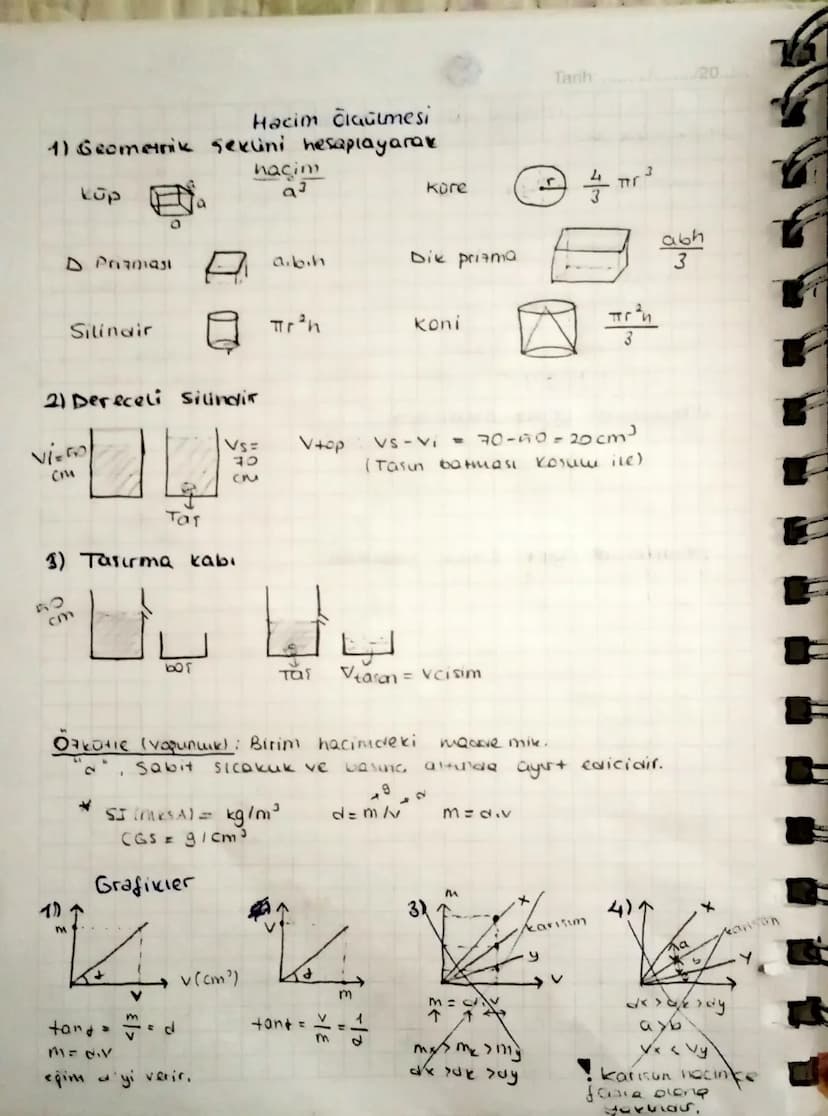 Tarih ............/20......
Hacim Ölçülmesi
1) Geometrik Şeklini hesaplayarak
hacim
Küp a a a³ Küre r 4/3 πr³
D Prizması a.b.h Dik prizma abh/3
Silindir r πr²h Koni πr²h/3
2) Dereceli Silindir
Vi=50 cm Vs= 70 cm Vtop Vs-Vi = 70-50 = 20cm³
(Taşın batması koşulu ile)
Taş
3) Taşırma kabı
50 cm
boş Taş Vtaşan = Vcisim
Özkütle (Yoğunluk): Birim hacimdeki madde mik.
"d", Sabit sıcaklık ve basınç altında ayırt edicidir.
* SI (MKSA) = kg/m³ d = m/v m = d.v
CGS = g/cm³
Grafikler
1) m V V(cm³)
V m
3) m x karışım y V
4) x karışım y a b
tanα = m/v = d
m = d.v
eğim d'yi verir.
tanα = v/m = 1/d
m = d.v
mx > mk > my
dx > dk > dy
dx > dk > dy
a > b
Vx < Vy
! karışım hacimce
fazla olana
yakındır.